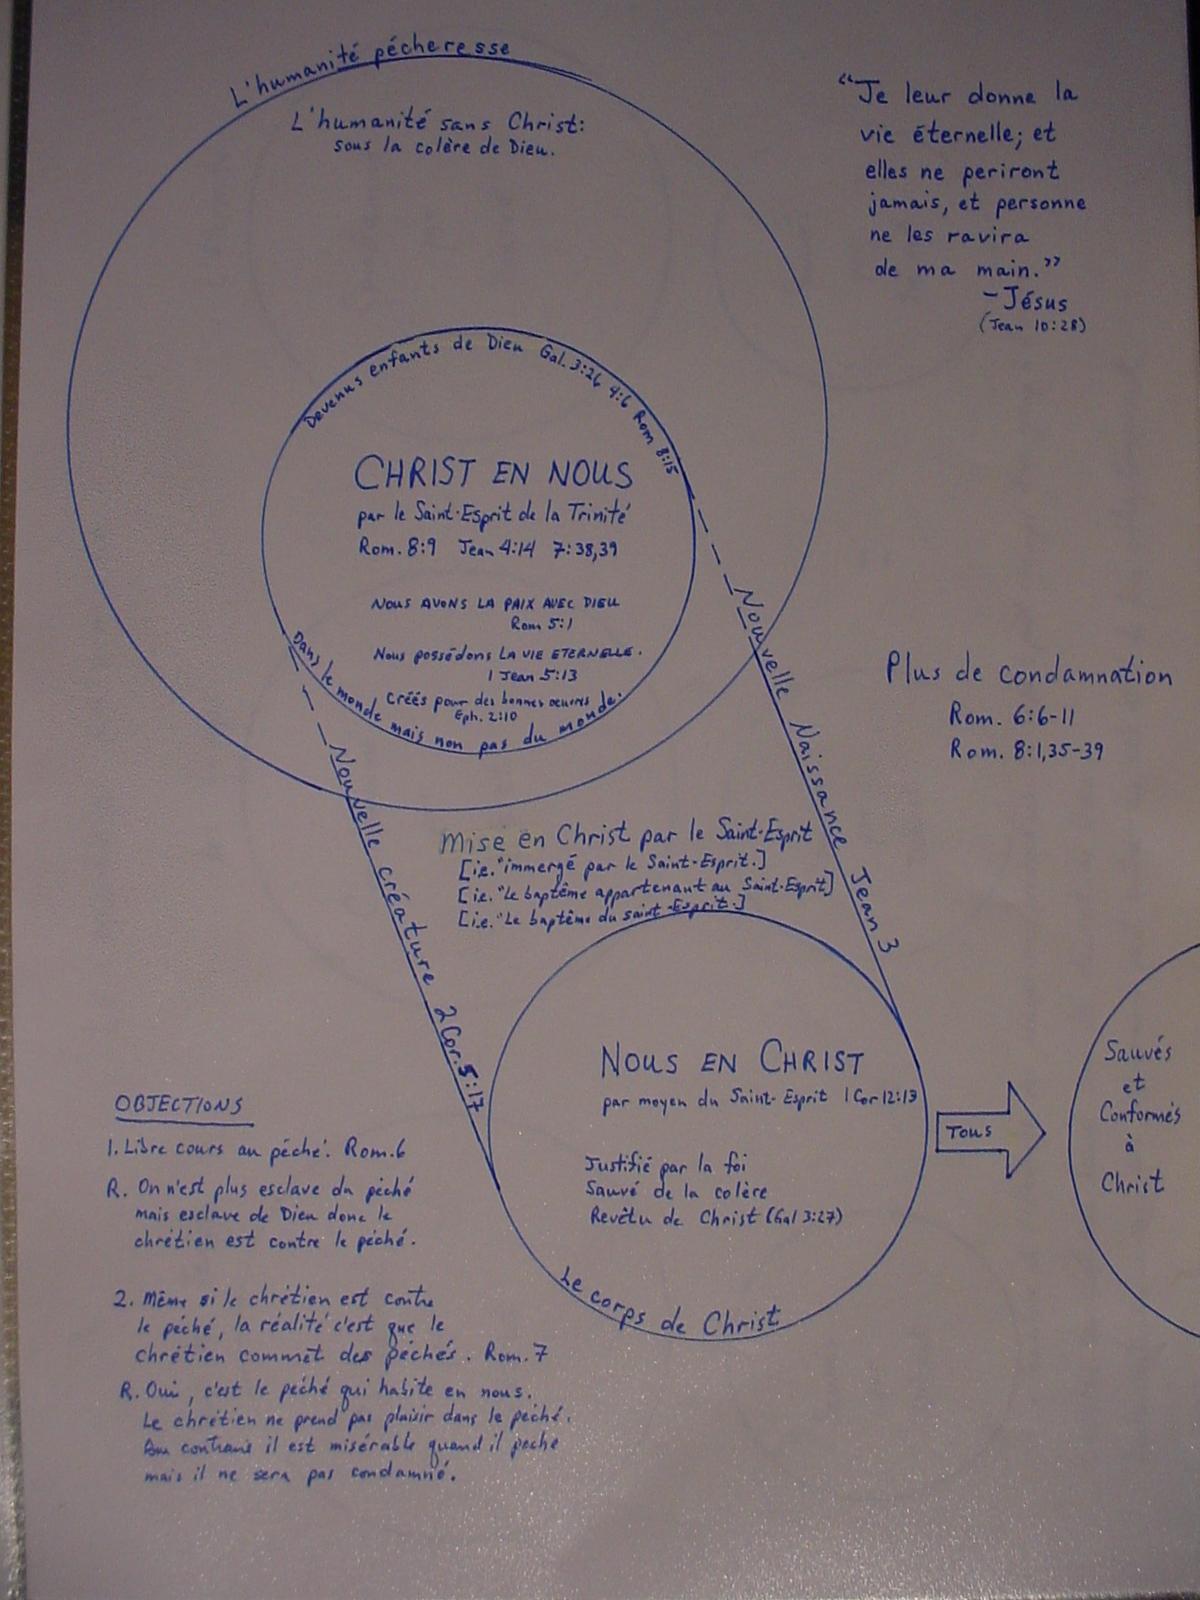 L'humanité pécheresse
L'humanité sans Christ:
sous la colère de Dieu.
"Je leur donne la
vie éternelle; et
elles ne periront
jamais, et personne
ne les ravira
de ma main."
- Jésus
(Jean 10:28)
Devenus enfants de Dieu Gal. 3:26 4:6 Rom 8:15
CHRIST EN NOUS
par le Saint-Esprit de la Trinité
Rom. 8:9 Jean 4:14 7:38,39
NOUS AVONS LA PAIX AVEC DIEU
Rom 5:1
Nous possédons LA VIE ETERNELLE.
1 Jean 5:13
Créés pour des bonnes oeuvres
Eph. 2:10
Dans le monde mais non pas du monde.
Nouvelle Naissance Jean 3
Nouvelle créature 2 Cor. 5:17
Plus de condamnation
Rom. 6:6-11
Rom. 8:1,35-39
Mise en Christ par le Saint-Esprit
[i.e. "immergé par le Saint-Esprit.]
[i.e. "Le baptême appartenant au Saint-Esprit]
[i.e. "Le baptême du saint Esprit.]
NOUS EN CHRIST
par moyen du Saint-Esprit 1 Cor 12:13
Justifié par la foi
Sauvé de la colère
Revêtu de Christ (Gal 3:27)
Le corps de Christ
TOUS
Sauvés
et
Conformés
à
Christ
OBJECTIONS
1. Libre cours au péché. Rom. 6
R. On n'est plus esclave du péché
mais esclave de Dieu donc le
chrétien est contre le péché.
2. Même si le chrétien est contre
le péché, la réalité c'est que le
chrétien commet des péchés. Rom. 7
R. Oui, c'est le péché qui habite en nous.
Le chrétien ne prend pas plaisir dans le péché.
Au contraire il est misérable quand il peche
mais il ne sera pas condamné.